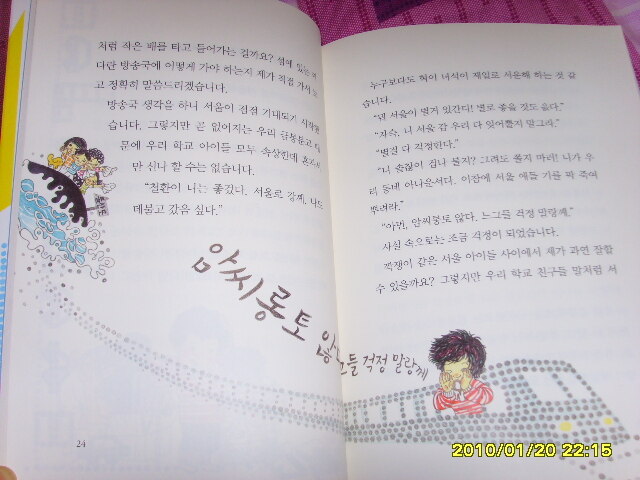 처럼 작은 배를 타고 들어가는 걸까요? 섬에 있는
다란 방송국에 어떻게 가야 하는지 제가 직접 가서 보
고 정확히 말씀드리겠습니다.
방송국 생각을 하니 서울이 점점 기대되기 시작했
습니다. 그렇지만 곧 없어지는 우리
문에 우리 학교 아이들 모두 속상한데 혼자서
만 신나 할 수는 없습니다.
"철환이 너는 좋겄다. 서울로 강께. 나도
데불고 갔음 싶다."
암씨롱토 않
들 걱정 말랑께
24
누구보다도 혁이 녀석이 제일로 서운해 하는 것 같
습니다.
"뎀 서울이 멀거 있간디! 별로 좋을 것도 읎다."
"자슥, 니 서울 감 우리 다 잊어뿔지 말그라."
"별걸 다 걱정한다."
"니 솔찮이 겁나 불지? 그려도 쫄지 마라! 니가 우
리 동네 아나운서다. 이참에 서울 애들 기를 팍 죽여
뿌려라."
"아먼, 암씨롱토 않다. 느그들 걱정 말랑께."
사실 속으로는 조금 걱정이 되었습니다.
깍쟁이 같은 서울 아이들 사이에서 제가 과연 잘할
수 있을까요? 그렇지만 우리 학교 친구들 말처럼 서
2010/01/20 22:15